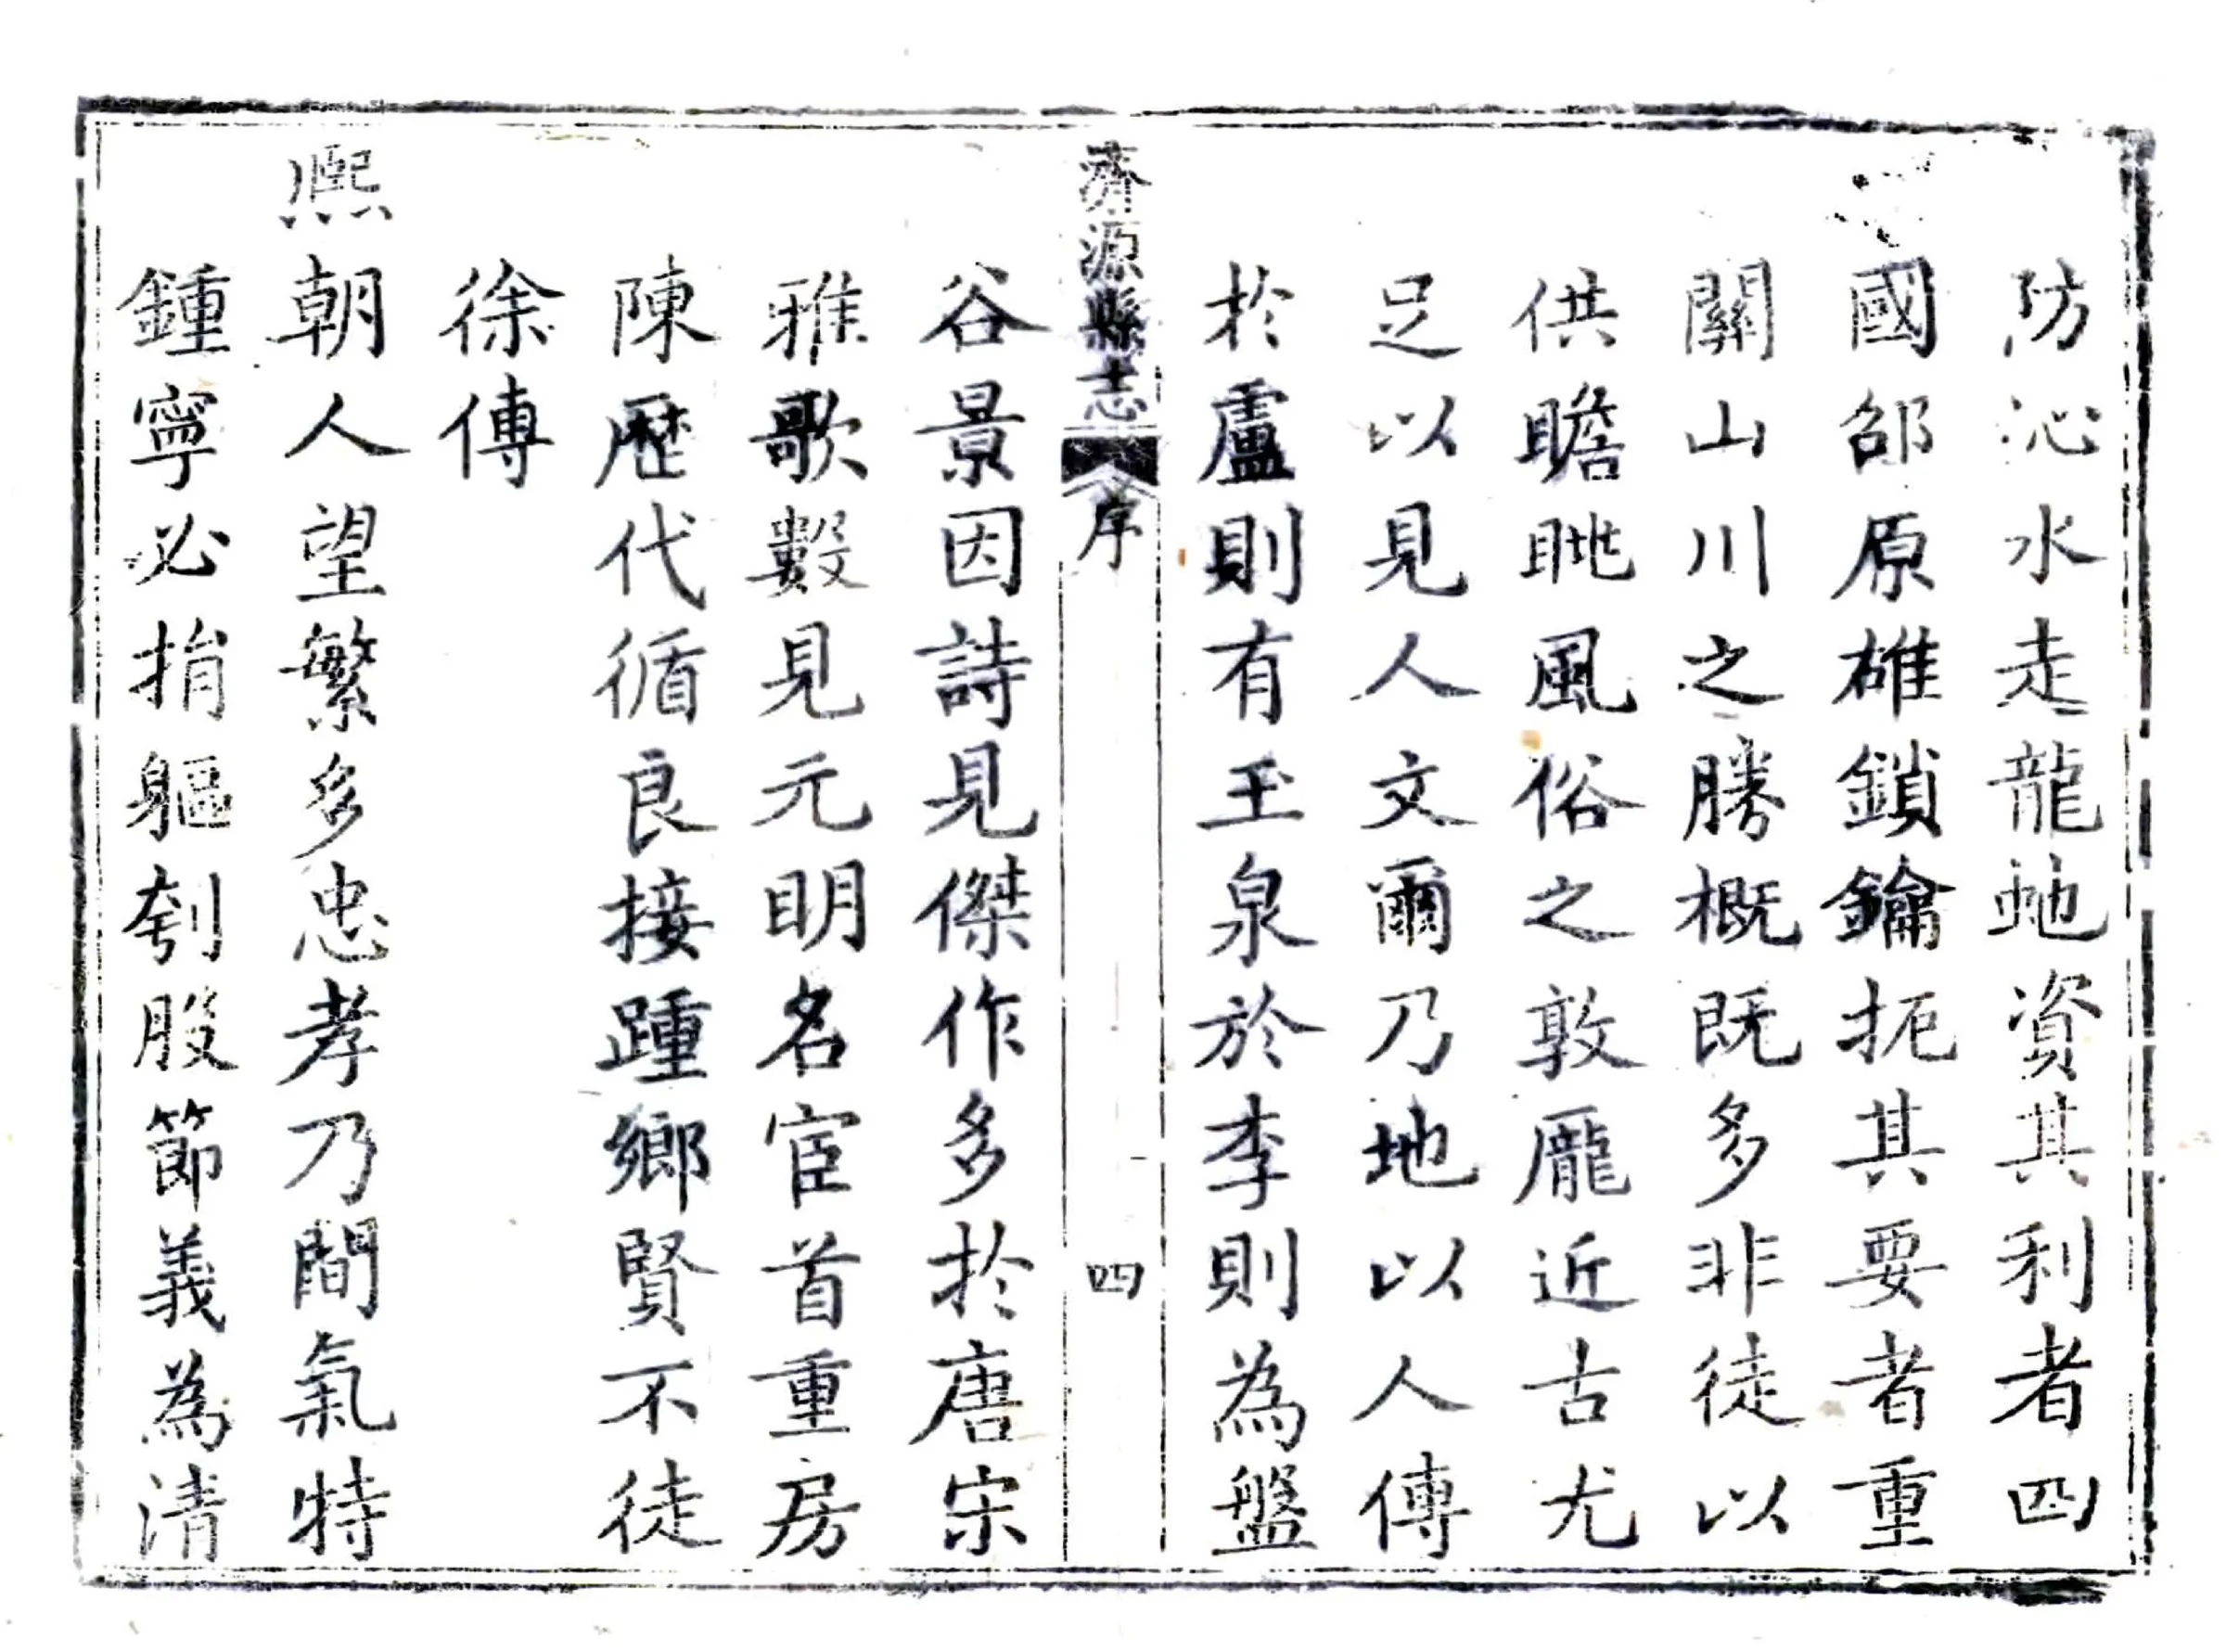 防沁水走龍虵資其利者四
國邵原雄鎖鑰扼其要者重
關山川之勝概既多非徒以
供瞻眺風俗之敦龐近古尤
足以見人文爾乃地以人傳
於盧則有玉泉於李則為盤
濟源縣志 序 四
谷景因詩見傑作多於唐宋
雅歌數見元明名宦首重房
陳歷代循良接踵鄉賢不徒
徐傅
熙朝人望繁多忠孝乃間氣特
鍾寧必捐軀刳股節義為清